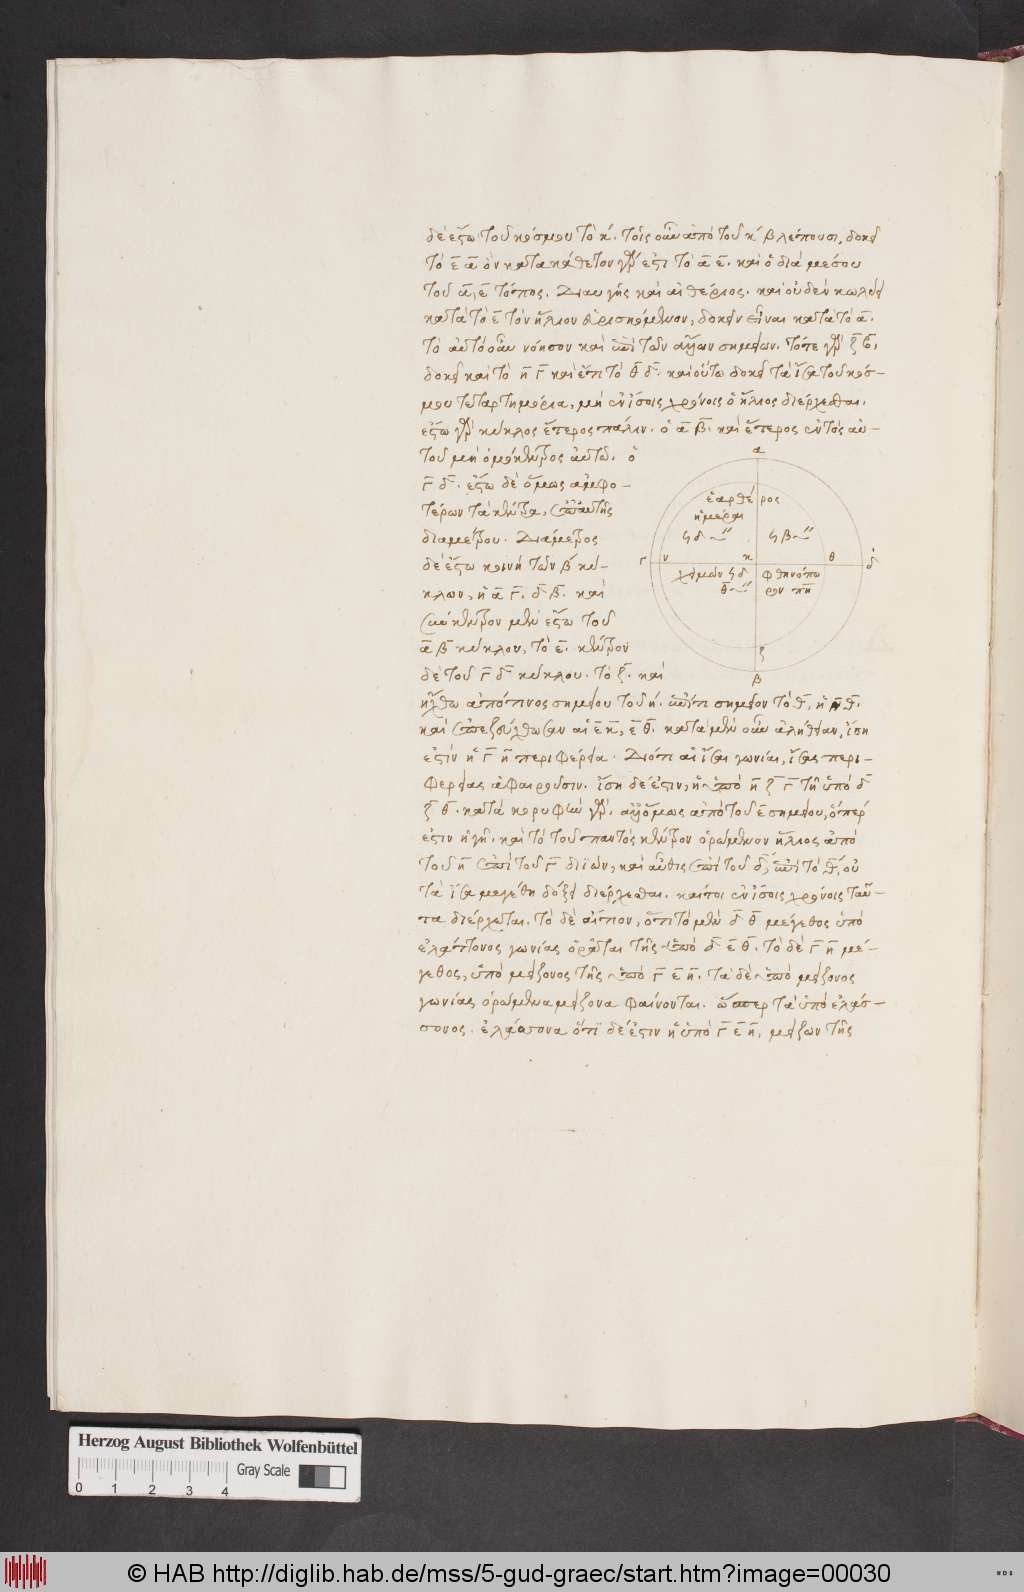 δὲ ἔξω τοῦ κόσμου τὸ κ̅. τοῖς οὖν ἀπὸ τοῦ κ̅ βλέπουσι, δοκεῖ
τὸ ε̅ α̅ ὂν κατὰ κάθετον γὰρ ἐστὶ τὸ α̅ ε̅. καὶ ὁ διὰ μέσου
τοῦ α̅, ε̅ τόπος. διαυγὴς καὶ αἰθέριος. καὶ οὐδὲν κωλύει
κατὰ τὸ ε̅ τὸν ἥλιον εὑρισκόμενον, δοκεῖν εἶναι κατὰ τὸ α̅.
τὸ αὐτὸ οὖν νόησον καὶ ἐπὶ τῶν ἄλλων σημείων. τότε γὰρ ζ̅ β̅,
δοκεῖ καὶ τὸ η̅ γ̅ καὶ ἔτι τὸ θ̅ δ̅. καὶ οὕτω δοκεῖ τὰ ἴσα τοῦ κόσ-
μου τεταρτημόρια, μὴ ἐν ἴσοις χρόνοις ὁ ἥλιος διέρχεσθαι.
ἔξω γὰρ κύκλος ἕτερος πάλιν. ὁ α̅ β̅. καὶ ἕτερος ἐντὸς αὐ-
τοῦ μὴ ὁμόκεντρος αὐτῷ. ὁ
γ̅ δ̅. ἔξω δὲ ὅμως ἀμφο-
τέρων τὰ κέντρα,
διαμέτρου. διάμετρος
δὲ ἔξω κοινὴ τῶν β̅ κύ-
κλων, ἡ α̅ γ̅. δ̅ β̅. καὶ
κέντρον μὲν ἔξω τοῦ
α̅ β̅ κύκλου, τὸ ε̅. κέντρον
δὲ τοῦ γ̅ δ̅ κύκλου. τὸ ζ̅. καὶ
ἤχθω ἀπό τινος σημείου τοῦ η̅. ἐπί τι σημεῖον τὸ θ̅, ἡ η̅ θ̅.
καὶ ἐπεζεύχθωσαν αἱ ε̅ η̅, ε̅ θ̅. κατὰ μὲν οὖν ἀλήθειαν, ἴση
ἐστὶν ἡ γ̅ η̅ περιφέρεια. διότι αἱ ἴσαι γωνίαι, ἴσας περι-
φερείας ἀφαιροῦσιν. ἴση δέ ἐστιν, ἡ ὑπὸ η̅ ζ̅ γ̅ τῇ ὑπὸ δ̅
ζ̅ θ̅. κατὰ κορυφὴν γὰρ. ἀλλ' ὅμως ἀπὸ τοῦ ε̅ σημείου, ὅπέρ
ἐστιν ἡ γῆ. καὶ τὸ τοῦ παντὸς κέντρον ὁρώμενον ἥλιος ἀπὸ
τοῦ η̅ ἐπὶ τοῦ γ̅ διϊὼν, καὶ αὖθις ἀπὸ τοῦ δ̅, ἐπὶ τὸ θ̅, οὐ
τὰ ἴσα μεγέθη δόξει διέρχεσθαι. καίτοι ἐν ἴσοις χρόνοις ταῦ-
τα διέρχεται. τὸ δὲ αἴτιον, ὅτι τὸ μὲν δ̅ θ̅ μέγεθος ὑπὸ
ἐλάττονος γωνίας ὁρᾶται τῆς ὑπὸ δ̅ ε̅ θ̅. τὸ δὲ γ̅ η̅ μέ-
γεθος, ὑπὸ μείζονος τῆς ὑπὸ γ̅ ε̅ η̅. τὰ δὲ ὑπὸ μείζονος
γωνίας ὁρώμενα μείζονα φαίνονται. ὥσπερ τὰ ὑπὸ ἐλάσ-
σονος. ἐλάσσονα ὅτι δέ ἐστιν ἡ ὑπὸ γ̅ ε̅ η̅, μείζων τῆς
α
ἔαρ θέρος
ἡμέραι
ϟδ ϟβ
γ ν κ θ δ
χειμὼν ϟδ φθινόπω
ρον πη
ζ
β
Herzog August Bibliothek Wolfenbüttel
Gray Scale
0 1 2 3 4
© HAB http://diglib.hab.de/mss/5-gud-graec/start.htm?image=00030